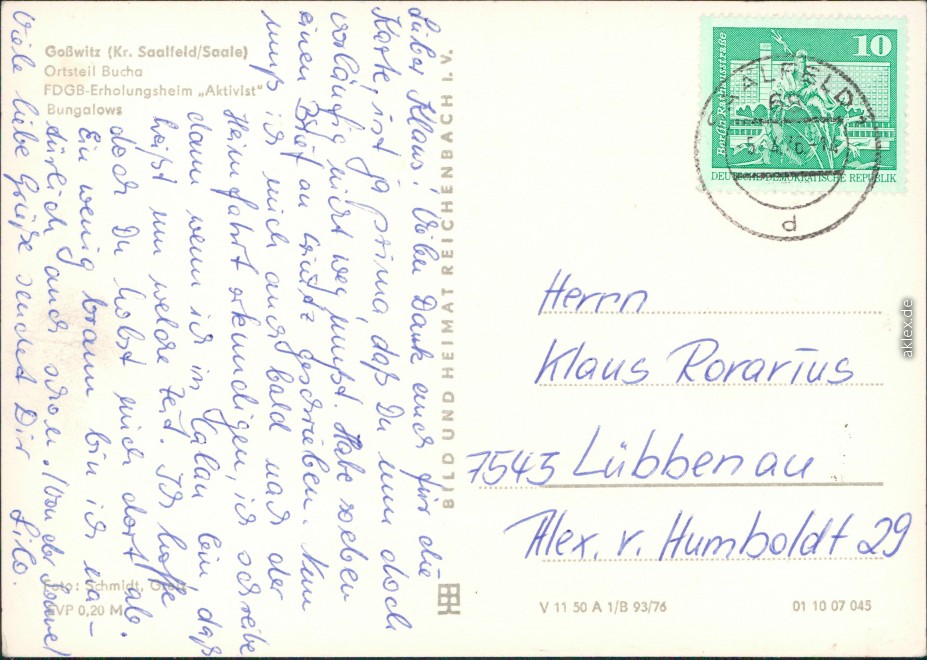 Goßwitz (Kr. Saalfeld/Saale)
Ortsteil Bucha
FDGB-Erholungsheim „Aktivist"
Bungalows
Lieber Klaus! Vielen Dank auch für die
Karte, ist ja prima, daß Du nun doch
vorläufig nicht weg mußt. Habe soeben
einen Brief an geschrieben. Nun
muß ich mich auch bald nach der
Heimfahrt erkundigen, ich schreibe
dann wenn ich in Calau bin, daß
weißt um welche Zeit. Ich hoffe
doch Du holst mich dort ab.
Ein wenig braun bin ich na-
türlich auch schon. (Von der Sonne)
Viele liebe Grüße sendet Dir Lilo.
Foto: Schmidt,
EVP 0,20 M
BILD UND HEIMAT REICHENBACH I. V.
10
Berlin Rathausstraße
DEUTSCHE DEMOKRATISCHE REPUBLIK
SAALFELD 1
68
d
Herrn
Klaus Rorarius
7543 Lübbenau
Alex. v. Humboldt 29
V 11 50 A 1/B 93/76
01 10 07 045
aklex.de